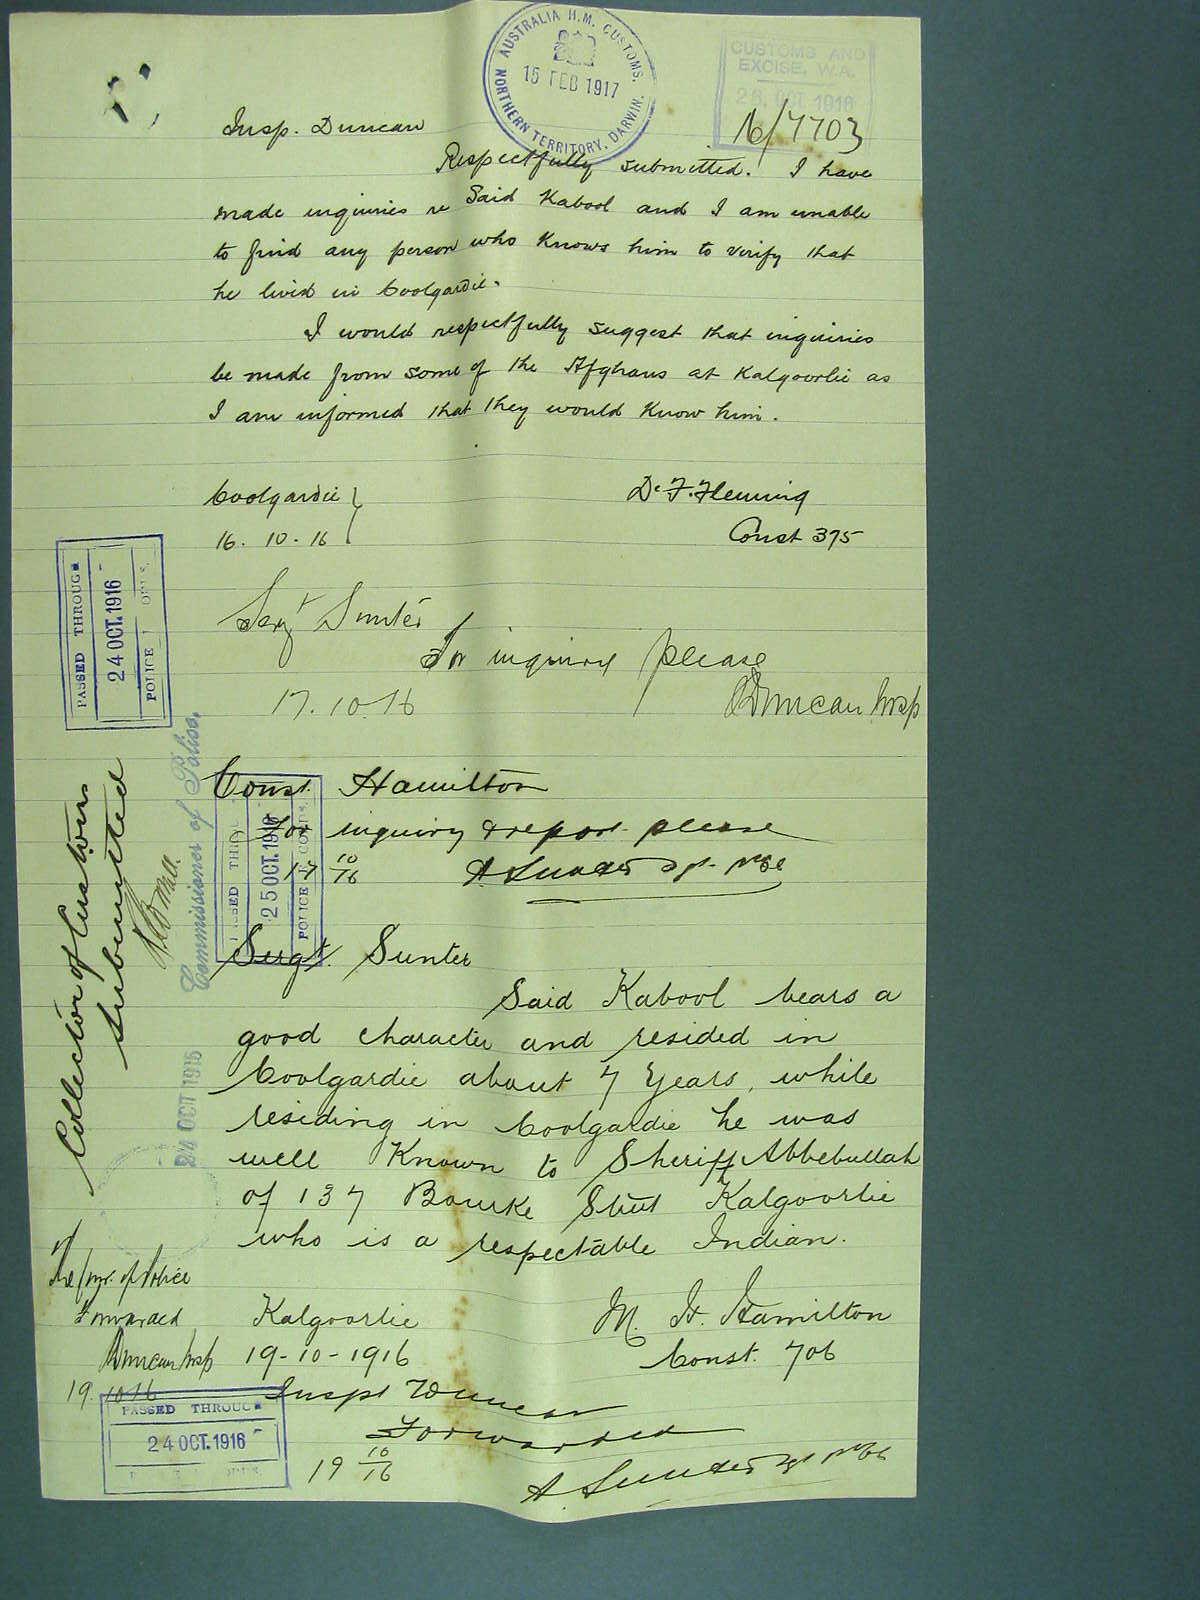 AUSTRALIA H.M. CUSTOMS.
15 FEB 1917
NORTHERN TERRITORY, DARWIN.
CUSTOMS AND
EXCISE, W.A.
26. OCT 1916
16/7703
Insp. Duncan
Respectfully submitted. I have
made inquiries re Said Kabool and I am unable
to find any person who knows him to verify that
he lived in Coolgardie.
I would respectfully suggest that inquiries
be made from some of the Afghans at Kalgoorlie as
I am informed that they would know him.
Coolgardie
16. 10. 16
F. Fleming
Const 375
Sergt Sunter
For inquiry please
17.10.16
Duncan Insp
PASSED THROUGH
24 OCT. 1916
POLICE
Const. Hamilton
for inquiry & report please
17 10/16
A Sunter Sgt
25 OCT. 1916
POLICE
Sergt. Sunter
Said Kabool bears a
good character and resided in
Coolgardie about 7 years, while
residing in Coolgardie he was
well known to Sheriff Abbebullah
of 137 Bourke Street Kalgoorlie
who is a respectable Indian.
Kalgoorlie
19-10-1916
M. H. Hamilton
Const. 706
Inspt Duncan
Forwarded
19 10/16
A. Sunter Sgt
Collector of Customs
Submitted
Commissioner of Police.
24 OCT 1916
The Comr. of Police
Forwarded
Duncan Insp
19.10.16
PASSED THROUGH
24 OCT. 1916